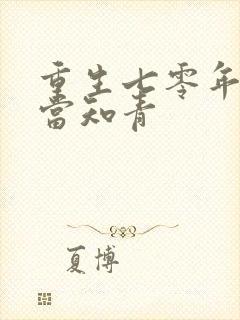 重生七零年
當知青
夏博